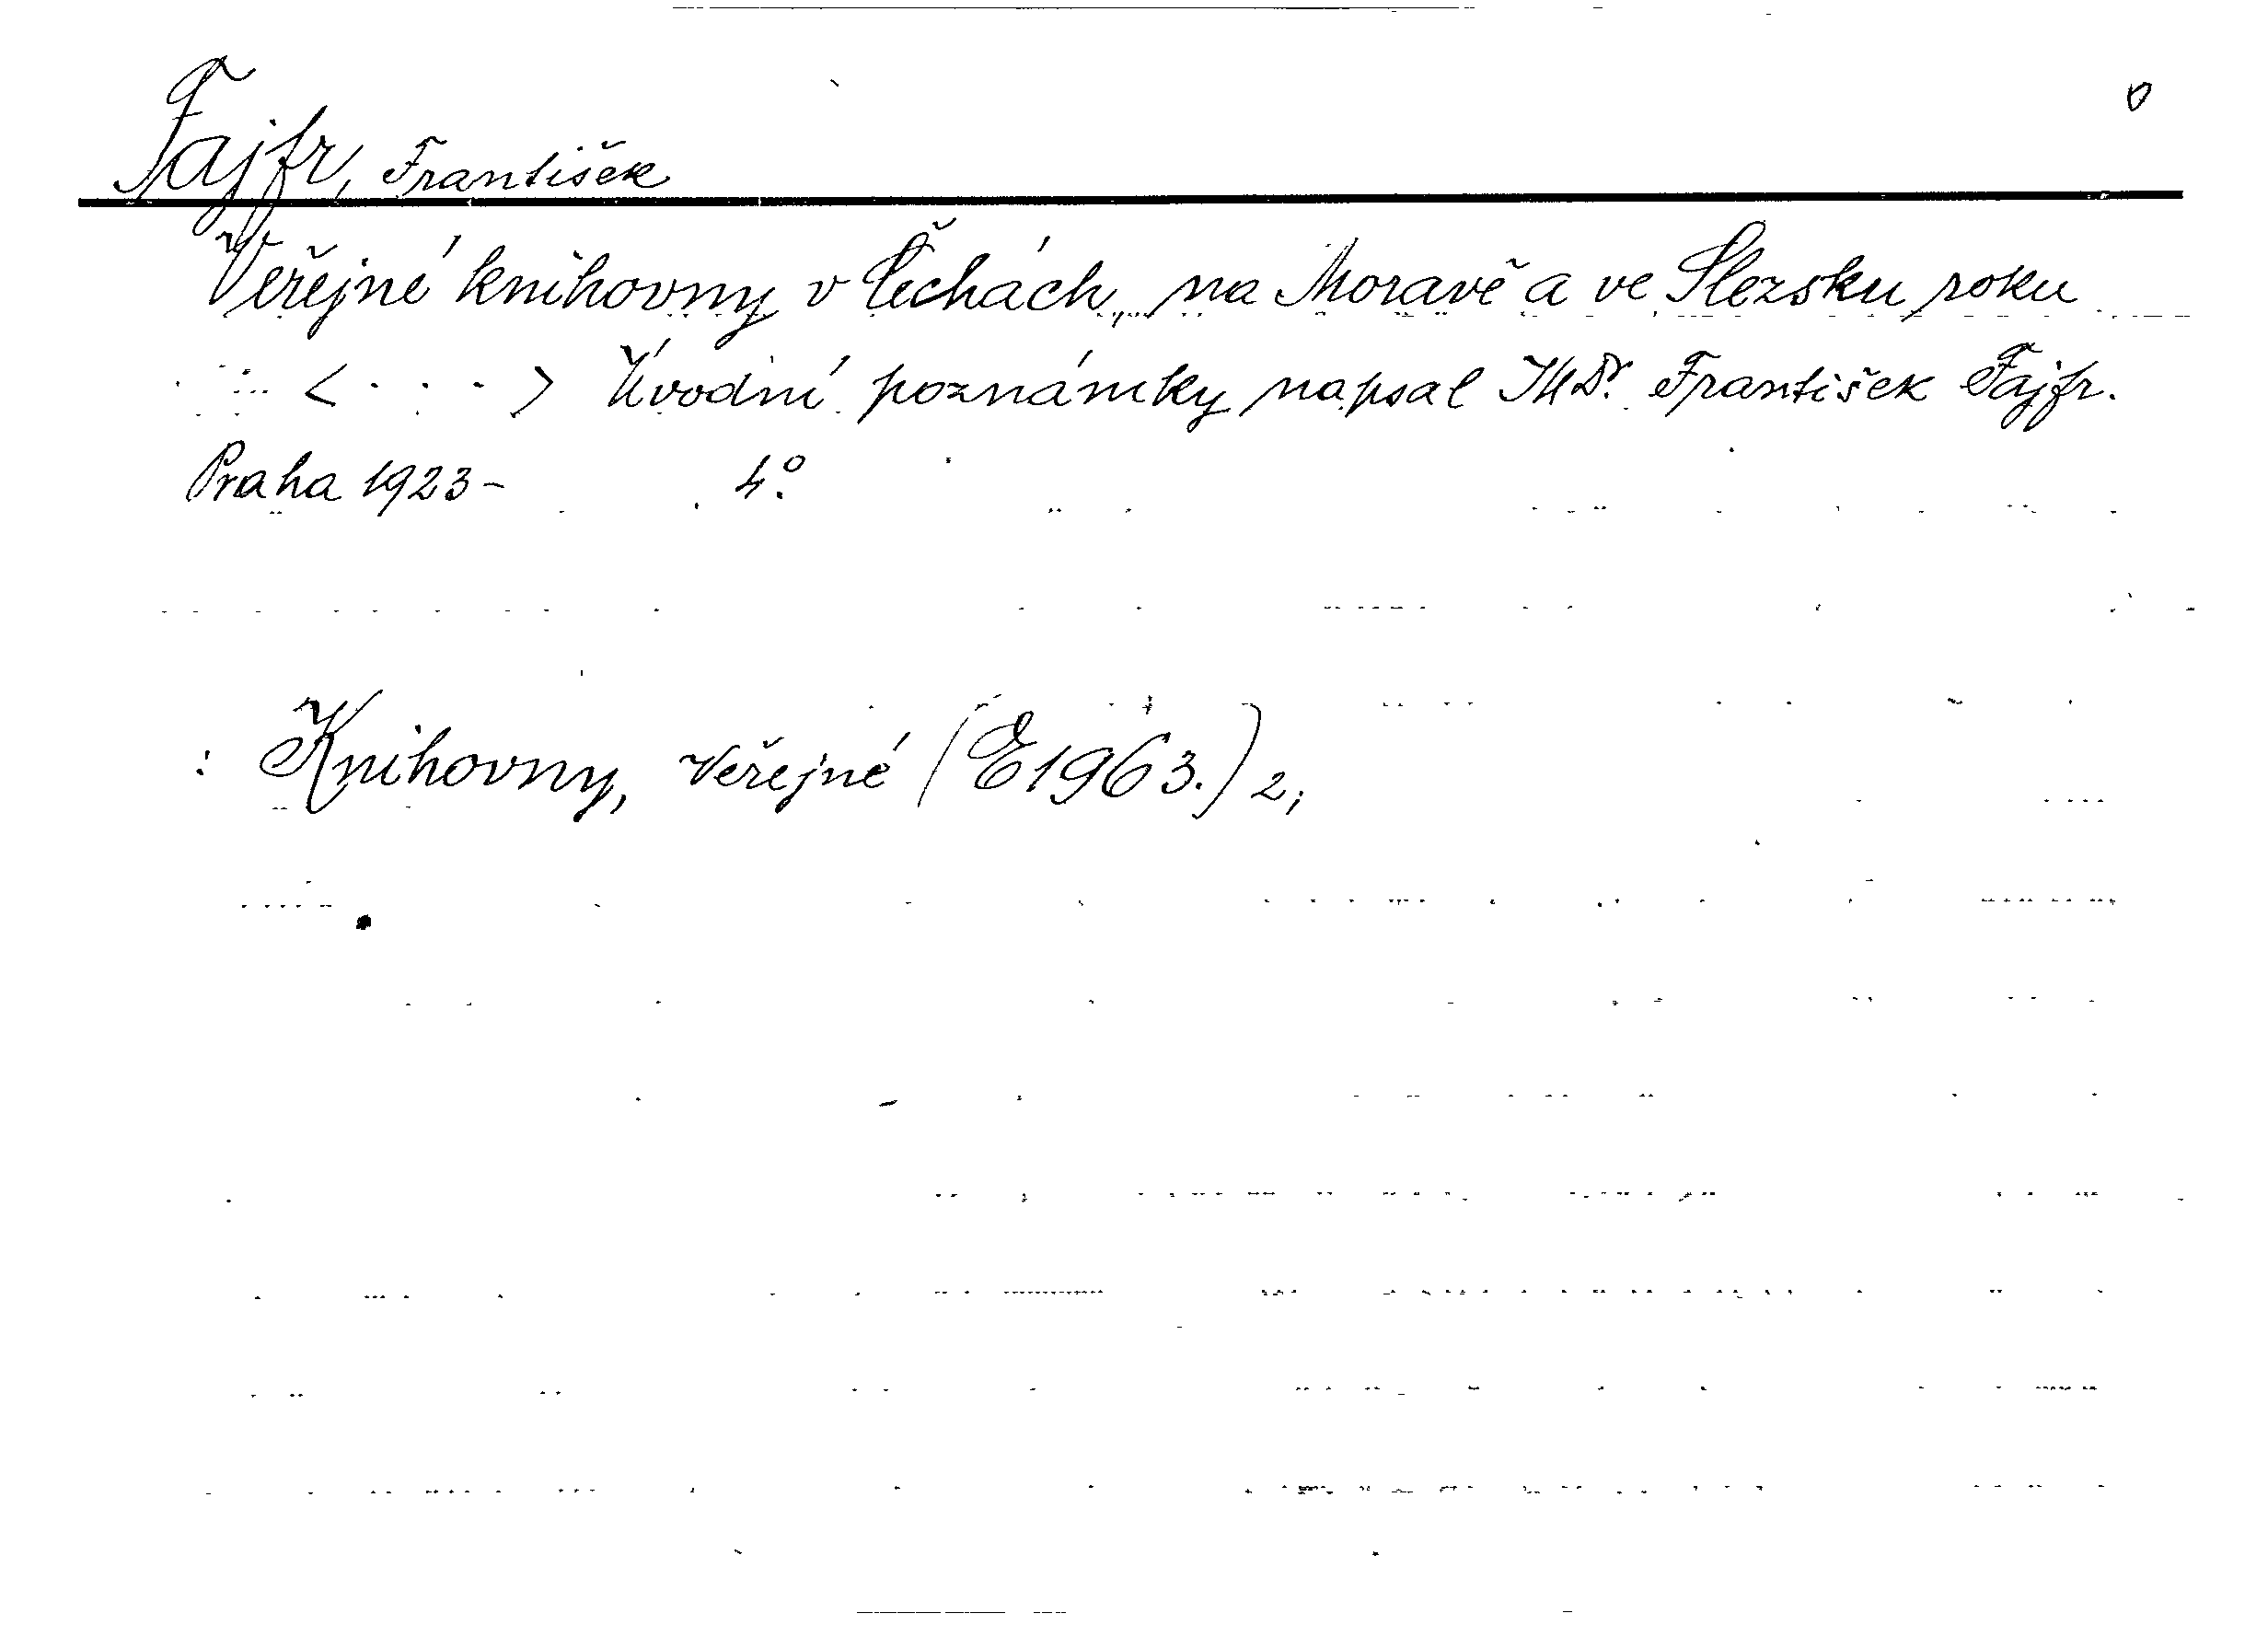 Fajfr, František
Veřejné knihovny v Čechách, na Moravě a ve Slezsku roku
... < . . . > Úvodní poznámky napsal JUDr. František Fajfr.
Praha 1923- 4°.
: Knihovny, veřejné (E1963.) 2,